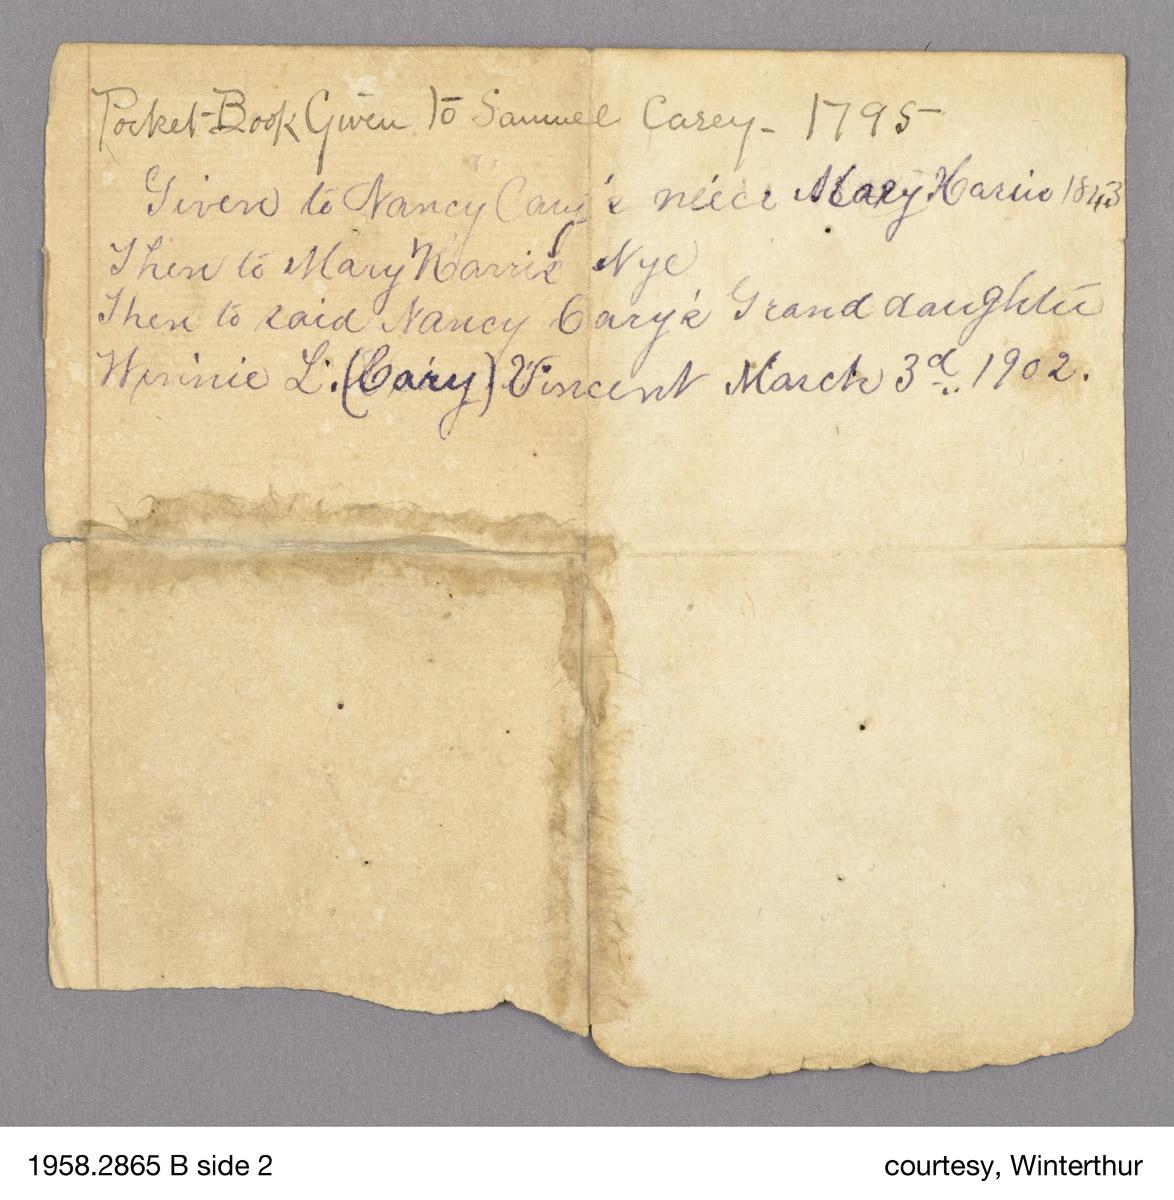 Pocket-Book Given to Samuel Carey- 1795
Given to Nancy Cary's niece Mary Harris 1843
Then to Mary Harris Nye
Then to said Nancy Cary's Grand daughter
Winnie L. (Cary) Vincent March 3d. 1902.
1958.2865 B side 2
courtesy, Winterthur